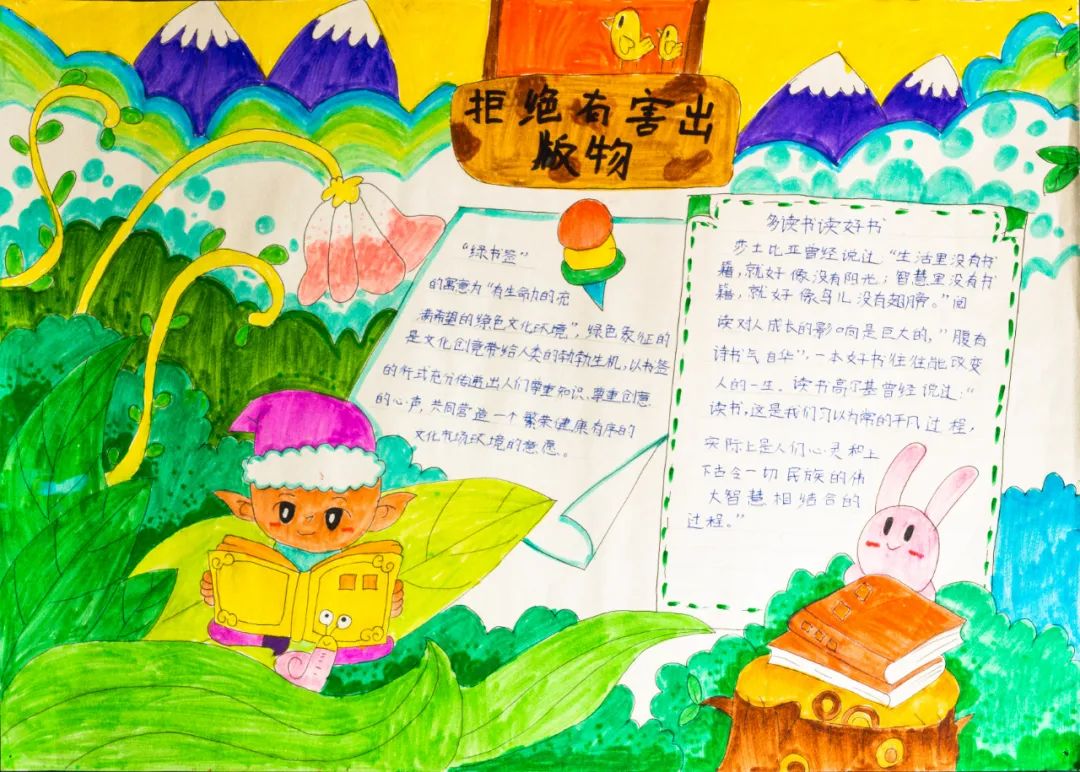 拒绝有害出
版物
“绿书签”
的寓意为“有生命力的充
满希望的绿色文化环境”，绿色象征的
是文化创意带给人类的勃勃生机，以书签
的行式充分传递出人们尊重知识、尊重创意
的心声，共同营造一个繁荣健康有序的
文化市场环境的意愿。
多读书读好书
莎士比亚曾经说过“生活里没有书
籍，就好像没有阳光；智慧里没有书
籍，就好像鸟儿没有翅膀。”阅
读对人成长的影响是巨大的，”腹有
诗书气自华”，一本好书往往能改变
人的一生。读书高尔基曾经说过：“
读书，这是我们习以为常的平凡过程，
实际上是人们心灵和上
下古今一切民族的伟
大智慧相结合的
过程。”